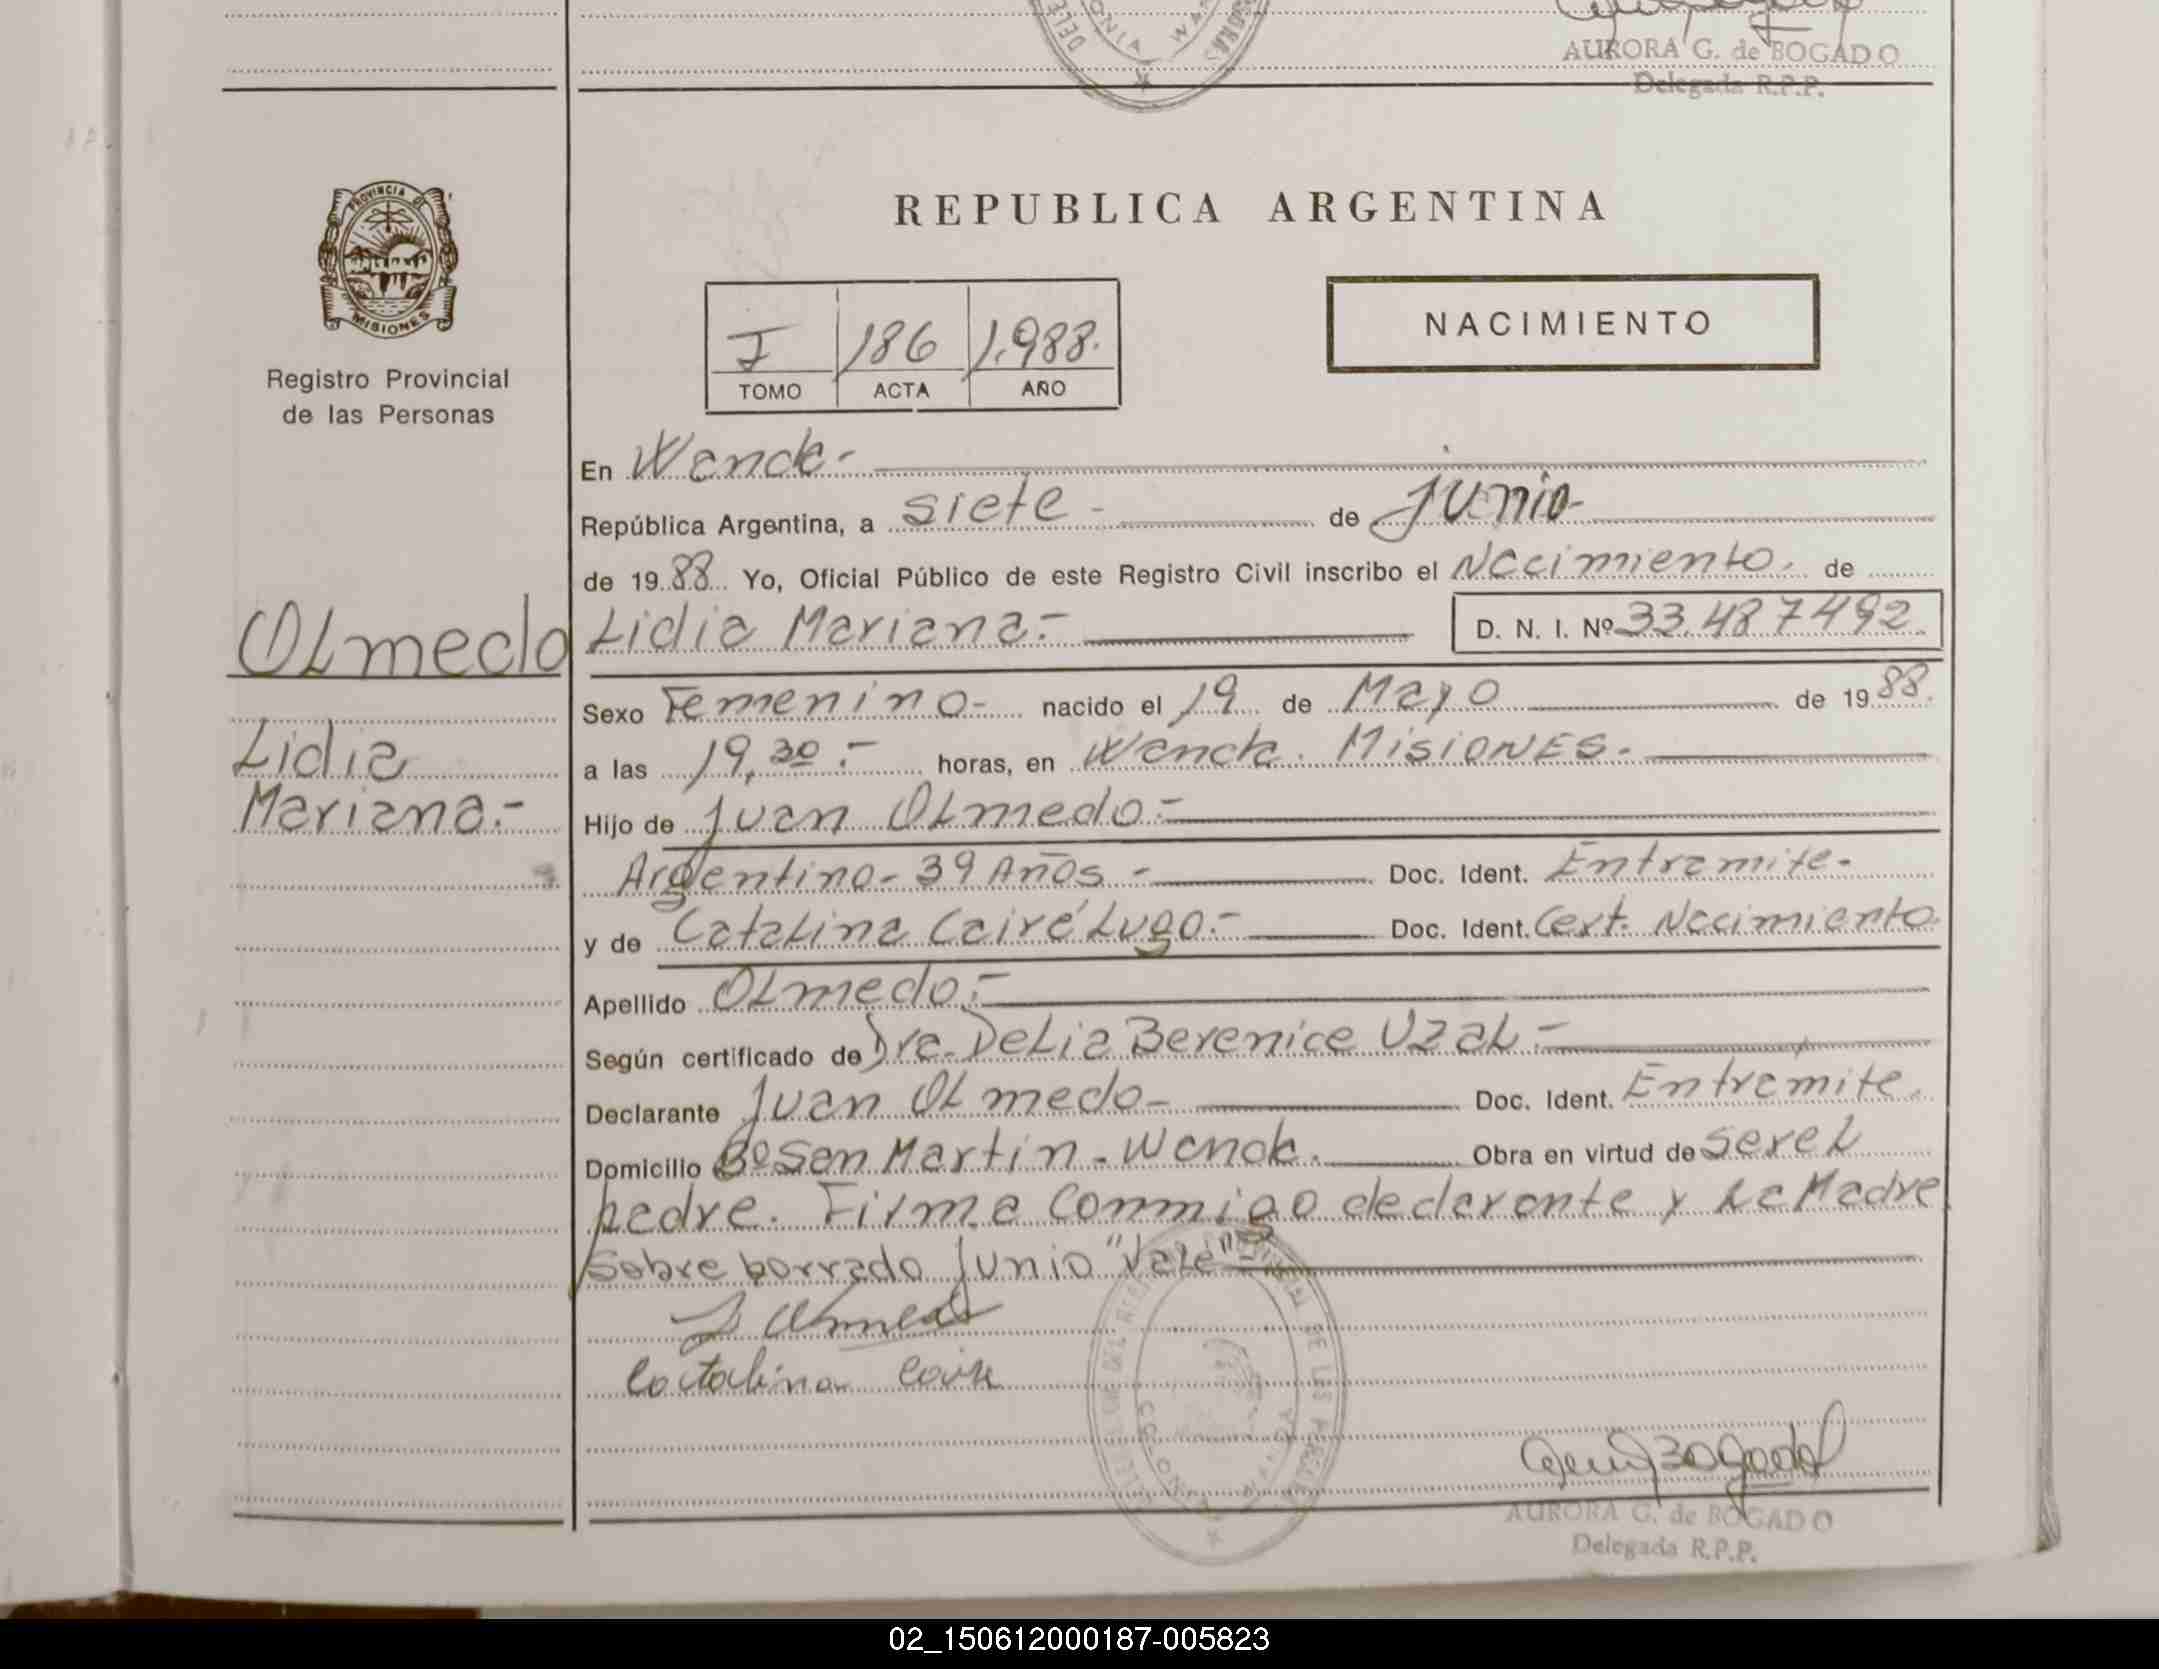 AURORA G. de BOGADO
Delegada R.P.P.
PROVINCIA DE
MISIONES
Registro Provincial
de las Personas
REPUBLICA ARGENTINA
I 186 1.988.
TOMO ACTA AÑO
NACIMIENTO
En Wanda-
República Argentina, a siete - de junio-
de 1988 Yo, Oficial Público de este Registro Civil inscribo el Nacimiento. de
OLmedo Lidia Mariana.- D. N. I. Nº 33.487492.
Sexo Femenino- nacido el 19 de Mayo de 1988.
Lidia
a las 19,30.- horas, en Wanda. MisioNES.-
Mariana.-
Hijo de Juan OLmedo.-
Argentino- 39 Años - Doc. Ident. Entramite-
y de CataLina Cairé Lugo.- Doc. Ident. Cert. Nacimiento.
Apellido OLmedo.-
Según certificado de Dra. DeLia Berenice UzaL.-
Declarante Juan OLmedo- Doc. Ident. Entramite.
Domicilio Bº San Martin - Wanda. Obra en virtud de ser eL
padre. Firma Conmigo declarante y La Madre
Sobre borrado junio "Vale"
J Olmedo
Catalina Caire
AURORA G. de BOGADO
Delegada R.P.P.
02_150612000187-005823